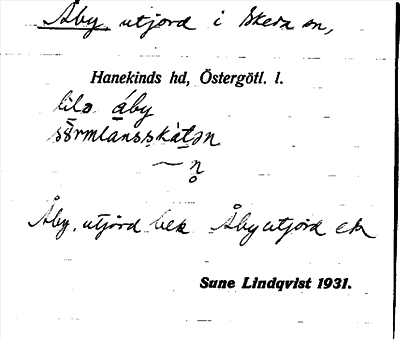 Åby utjord i Skeda sn,
Hanekinds hd, Östergötl. l.
lilə åby
sörmlansskàtən
— n̥
Åby, utjord bek Åby utjord ek
Sune Lindqvist 1931.